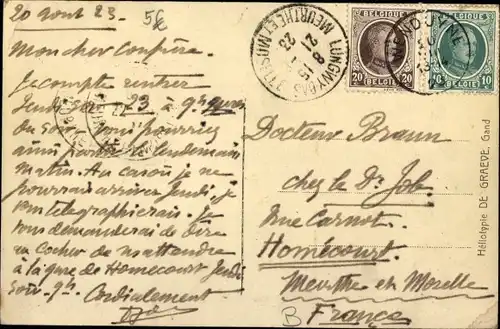 20 Aout 23.
5£
Mon cher Confrère.
Je compte rentrer
Jeudi soir 23 à 9h
du soir. Vous pourriez
ainsi partir le lendemain
matin. Au cas où je ne
pourrais arriver Jeudi, je
vous telegraphierais. Je
vous demanderai de dire
au cocher de m'attendre
à la gare de Homécourt Jeudi
soir 9h. Cordialement
LONGWY-BAS
MEURTHE ET MOSELLE
8 15
21
23
BELGIQUE
20 BELGIE 20
BELGIQUE
10 BELGIE 10
Docteur Braun
chez le Dr Job.
rue Carnot.
Homécourt
Meurthe et Moselle
France
B
Héliotypie DE GRAEVE, Gand